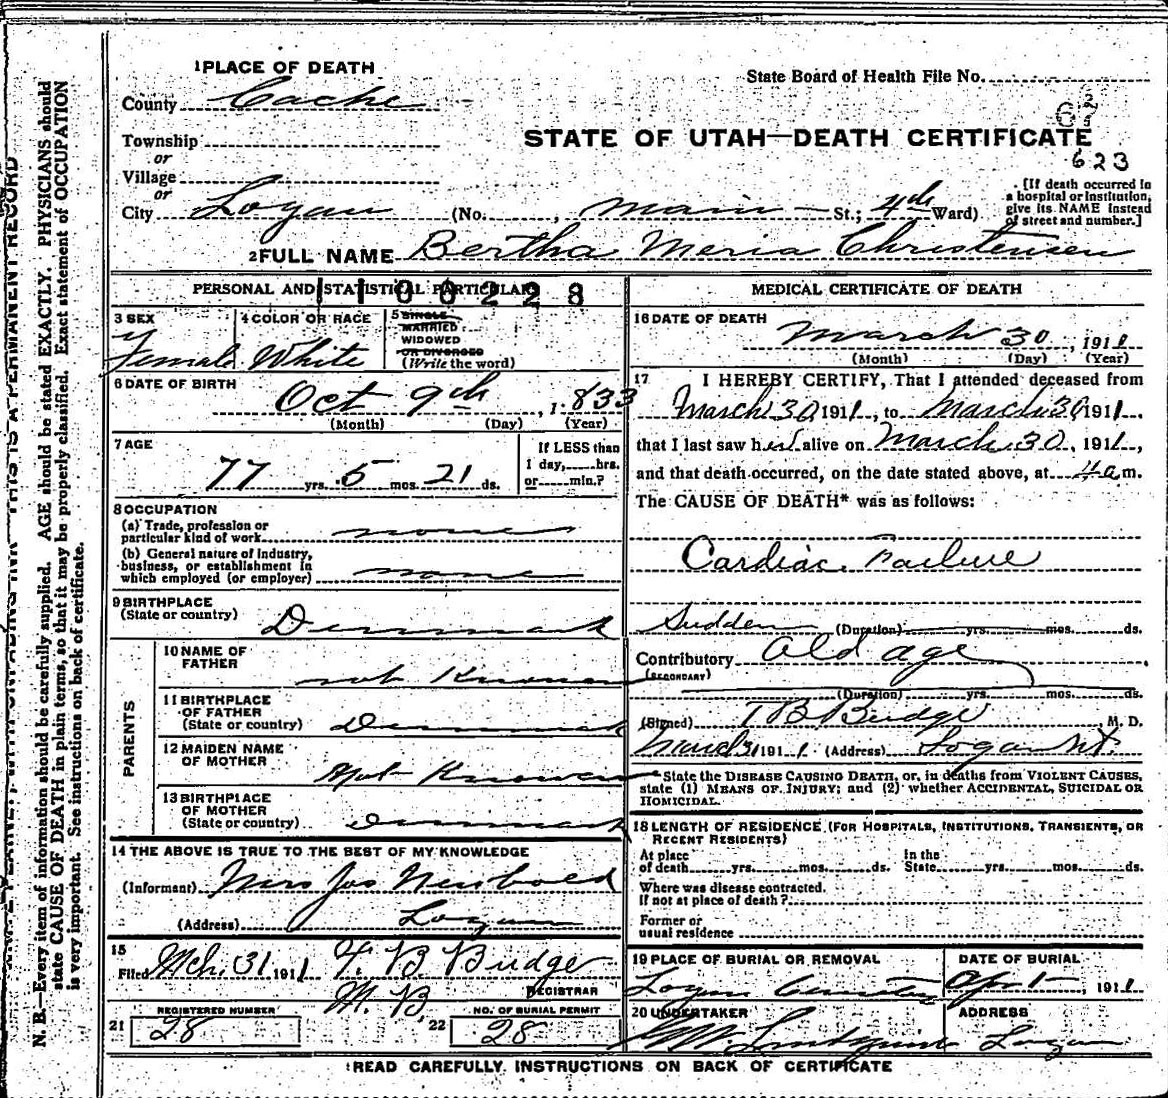 1 PLACE OF DEATH
County Cache
Township
or
Village
or
City Logan (No. , Main St.; 4th Ward)
State Board of Health File No.
STATE OF UTAH—DEATH CERTIFICATE
623
[If death occurred in
a hospital or institution,
give its NAME instead
of street and number.]
2 FULL NAME Bertha Meria Christensen
PERSONAL AND STATISTICAL PARTICULARS
3 SEX
Female
4 COLOR OR RACE
White
5 SINGLE
MARRIED
WIDOWED
OR DIVORCED
(Write the word)
6 DATE OF BIRTH
Oct 9th, 1833
(Month) (Day) (Year)
7 AGE
77 yrs. 5 mos. 21 ds.
If LESS than
1 day, hrs.
or min.?
8 OCCUPATION
(a) Trade, profession or
particular kind of work none
(b) General nature of industry,
business, or establishment in
which employed (or employer) none
9 BIRTHPLACE
(State or country) Denmark
PARENTS
10 NAME OF
FATHER not Known
11 BIRTHPLACE
OF FATHER
(State or country) Denmark
12 MAIDEN NAME
OF MOTHER Not Known
13 BIRTHPLACE
OF MOTHER
(State or country) Denmark
14 THE ABOVE IS TRUE TO THE BEST OF MY KNOWLEDGE
(Informant) Mrs Jos Newbold
(Address) Logan
15
Filed Mch. 31 1911 T. B. Budge
REGISTRAR
21 REGISTERED NUMBER
28
22 NO. OF BURIAL PERMIT
28
MEDICAL CERTIFICATE OF DEATH
16 DATE OF DEATH
March 30, 1911
(Month) (Day) (Year)
17 I HEREBY CERTIFY, That I attended deceased from
March 30 1911, to March 30 1911,
that I last saw her alive on March 30, 1911,
and that death occurred, on the date stated above, at 4 a m.
The CAUSE OF DEATH* was as follows:
Cardiac Failure
Sudden (Duration) yrs. mos. ds.
Contributory Old age
(SECONDARY)
(Duration) yrs. mos. ds.
(Signed) T B Budge, M. D.
March 31 1911 (Address) Logan Ut.
*State the DISEASE CAUSING DEATH, or, in deaths from VIOLENT CAUSES,
state (1) MEANS OF INJURY; and (2) whether ACCIDENTAL, SUICIDAL OR
HOMICIDAL.
18 LENGTH OF RESIDENCE (FOR HOSPITALS, INSTITUTIONS, TRANSIENTS, OR
RECENT RESIDENTS)
At place In the
of death yrs. mos. ds. State yrs. mos. ds.
Where was disease contracted.
If not at place of death?
Former or
usual residence
19 PLACE OF BURIAL OR REMOVAL
Logan Cemetery
DATE OF BURIAL
Apr 1, 1911
20 UNDERTAKER
Lindquist
ADDRESS
Logan
READ CAREFULLY INSTRUCTIONS ON BACK OF CERTIFICATE
N. B.—Every item of information should be carefully supplied. AGE should be stated EXACTLY. PHYSICIANS should
state CAUSE OF DEATH in plain terms, so that it may be properly classified. Exact statement of OCCUPATION
is very important. See instructions on back of certificate.